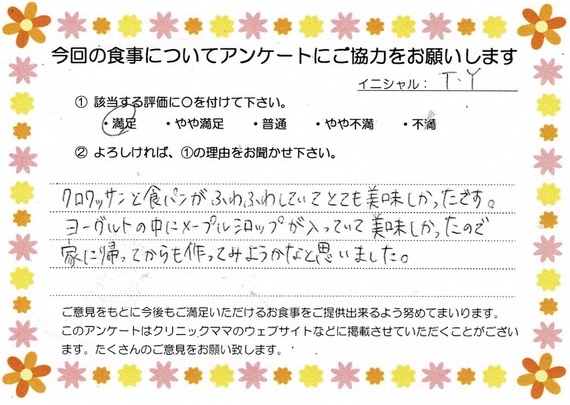 今回の食事についてアンケートにご協力をお願いします
イニシャル： T.Y
① 該当する評価に○を付けて下さい。
・満足 ・やや満足 ・普通 ・やや不満 ・不満
② よろしければ、①の理由をお聞かせ下さい。
クロワッサンと食パンがふわふわしていてとても美味しかったです。
ヨーグルトの中にメープルシロップが入っていて美味しかったので
家に帰ってからも作ってみようかなと思いました。
ご意見をもとに今後もご満足いただけるお食事をご提供出来るよう努めてまいります。
このアンケートはクリニックママのウェブサイトなどに掲載させていただくことがござい
ます。たくさんのご意見をお願い致します。